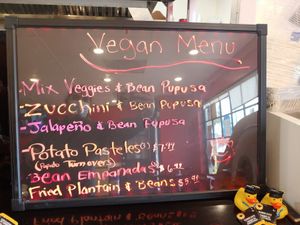 Vegan Menu
- Mix Veggies & Bean Pupusa
- Zucchini & Bean Pupusa
- Jalapeño & Bean Pupusa
- Potato Pasteles $7.99
Turnovers)
Bean Empanadas $6.99
Fried Plantain & Beans $5.99